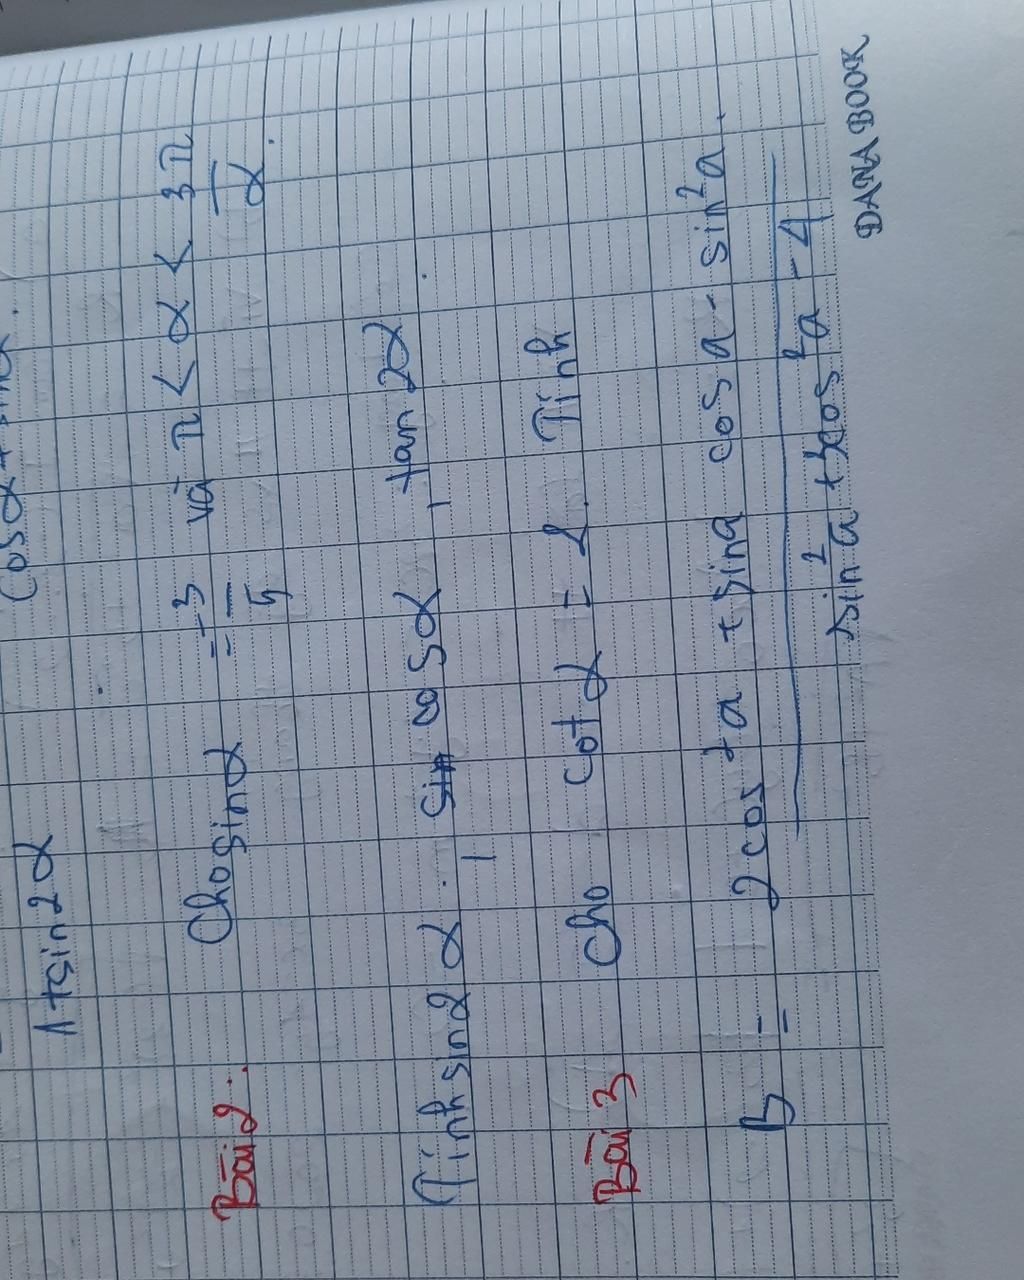 cosα + sinα.
1+sin2α
Bài 2: Cho sinα = -3/5 và π < α < 3π/2.
Tính sin2α, cosα, tan2α.
Bài 3 Cho cotα = 2. Tính
B = 2cos²a + sina cosa - sin²a.
sin²a + 3cos²a - 4
DANA BOOK